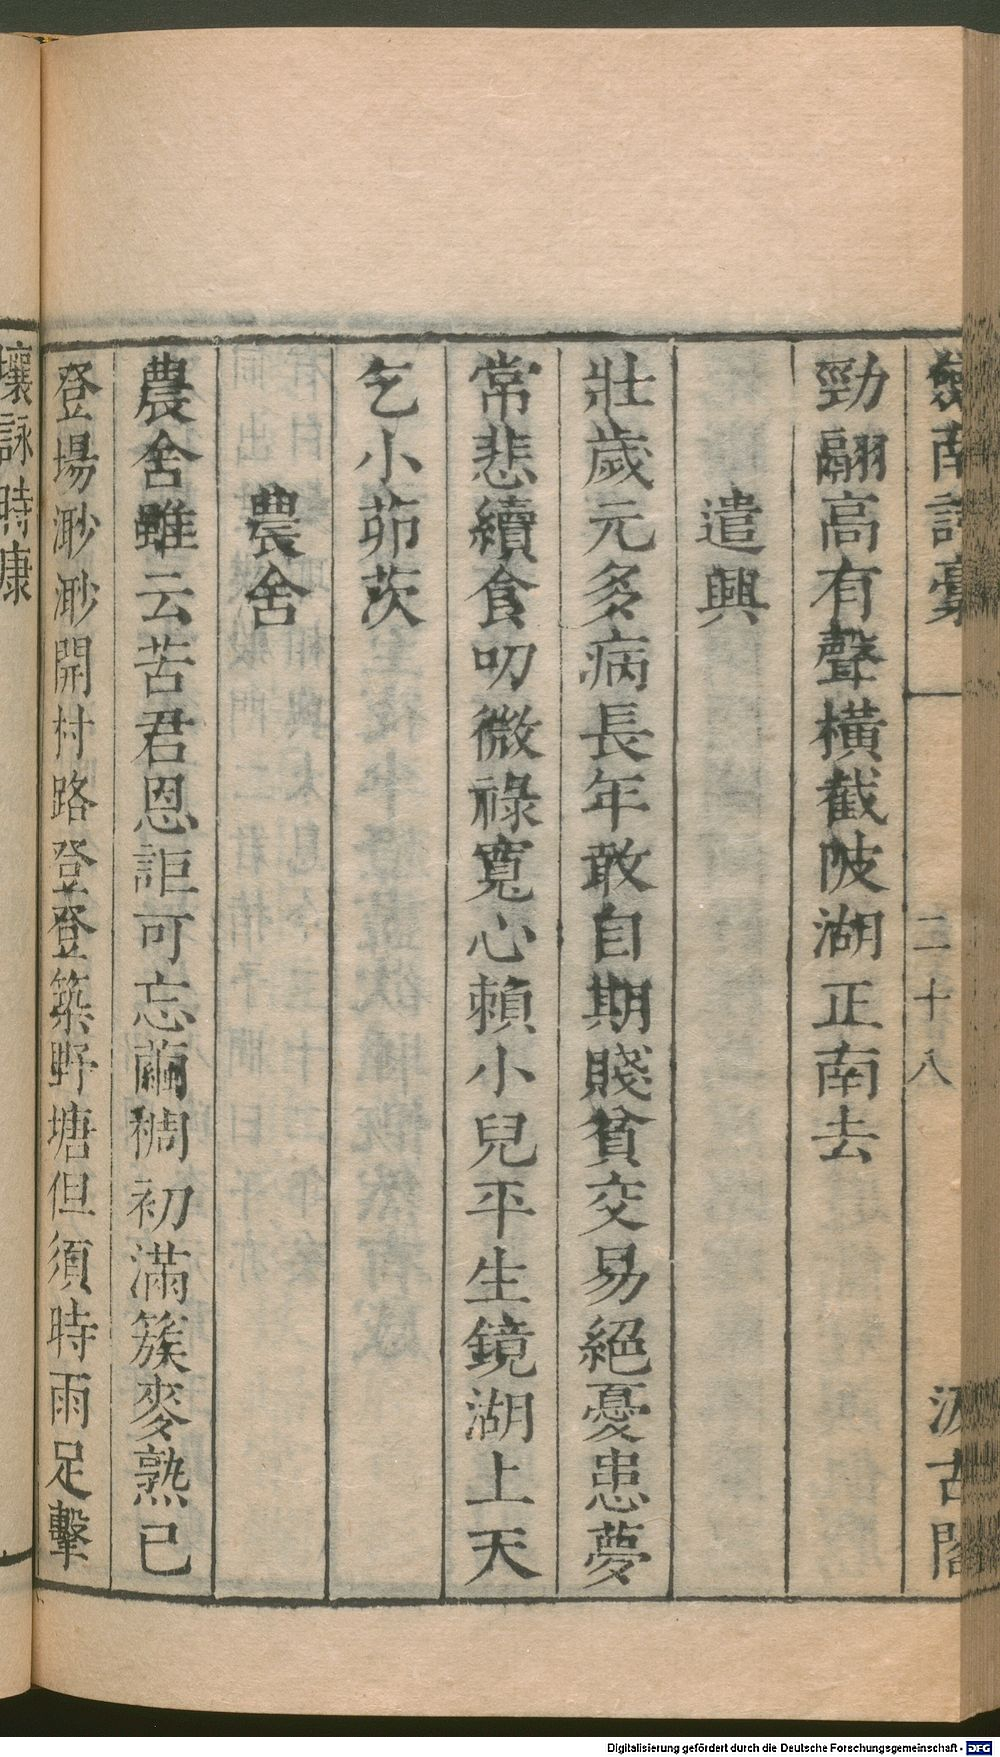 劍南詩稾 二十八 汲古閣
勁翮高有聲橫截陂湖正南去
遣興
壯歲元多病長年敢自期賤貧交易絕憂患夢
常悲續食叨微祿寬心賴小兒平生鏡湖上天
乞小茆茨
農舍
農舍雖云苦君恩詎可忘繭稠初滿簇麥熟已
登場渺渺開村路登登築野塘但須時雨足擊
壤詠時康
Digitalisierung gefördert durch die Deutsche Forschungsgemeinschaft - DFG